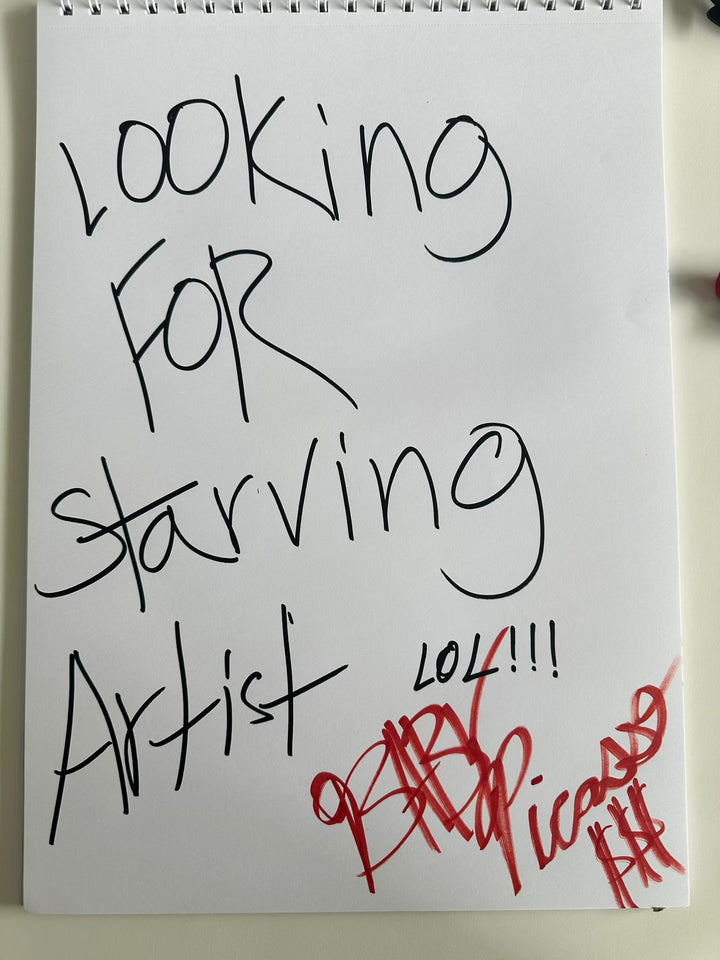 Looking
FOR
starving
Artist
LOL!!!
BABY Picasso
$$$